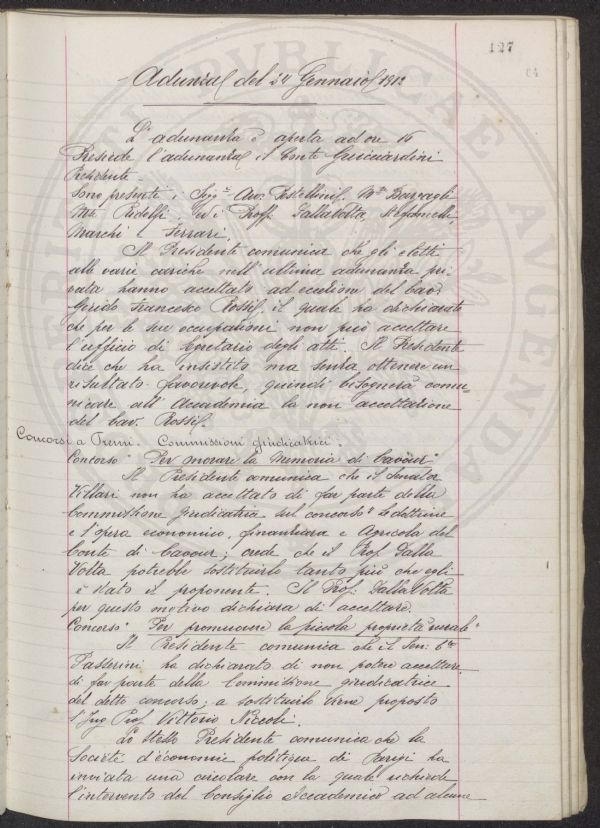 127
64
Adunza del 24 Gennaio 1912
L'adunanza è aperta ad ore 16
Presiede l'adunanza il Conte Guicciardini
Presidente.
Sono presenti i Sigri Avv. Pestellini, Mse Bargagli
Mse Ridolfi, ed i Proff. Dalla Volta, Stefanelli,
Marchi e Ferrari.
Il Presidente comunica che gli eletti
alle varie cariche nell'ultima adunanza pri-
vata hanno accettato ad eccezione del Cav.
Guido Francesco Rossi, il quale ha dichiarato
che per le sue occupazioni non può accettare
l'ufficio di Segretario degli atti. Il Presidente
dice che ha insistito ma senza ottenere un
risultato favorevole, quindi bisognerà comu-
nicare all'Accademia la non accettazione
del Cav. Rossi.
Concorsi a Premi. Commissioni giudicatrici.
Concorso "Per onorare la Memoria di Cavour"
Il Presidente comunica che il Senator
Villari non ha accettato di far parte della
Commissione giudicatrice sul concorso "Le dottrine
e l'opera economica, finanziaria e Agricola del
Conte di Cavour; crede che il Prof. Dalla
Volta potrebbe sostituirlo tanto più che egli
è stato il proponente. Il Prof. Dalla Volta
per questo motivo dichiara di accettare.
Concorso "Per promuovere la piccola proprietà rurale"
Il Presidente comunica che il Sen: Cte
Passerini ha dichiarato di non potere accettare
di far parte della Commissione giudicatrice
del detto concorso; a sostituirlo viene proposto
l'Ing Prof. Vittorio Niccoli.
Lo stesso Presidente comunica che la
Societé d'économie politique di Parigi ha
inviata una circolare con la quale richiede
l'intervento del Consiglio Accademico ad alcune
PUBLICAE
AUGENDAE